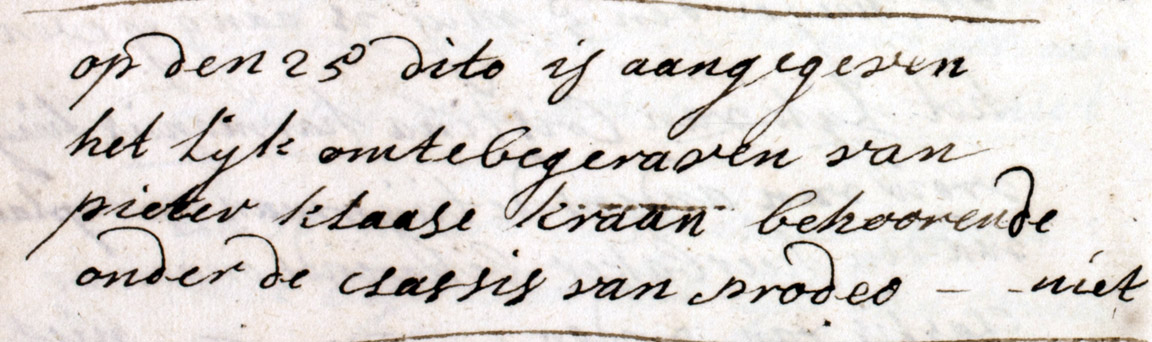 op den 25 dito is aangegeven
het lijk om te begeraven van
pieter klaase kraan behoorende
onder de classis van prodeo - - niet